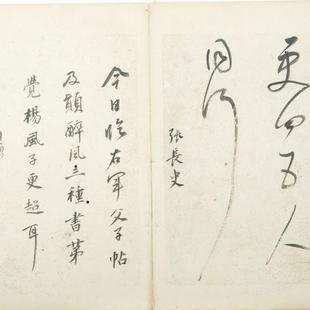 更四五人
同行
張長史
今日臨右軍父子帖
及顛醉風三種書第
覺楊風子更超耳